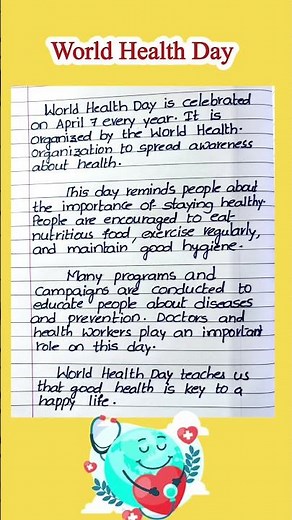 World Health Day
World Health Day is celebrated
on April 7 every year. It is
organized by the World Health.
Organization to spread awareness
about health.
This day reminds people about
the importance of staying healthy
People are encouraged to eat
nutritious food, exercise regularly,
and maintain good hygiene.
Many programs and
Campaigns are conducted to
educate people about diseases
and prevention. Doctors and
health workers play an important
role on this day.
World Health Day teaches us
that good health is key to a
happy life.